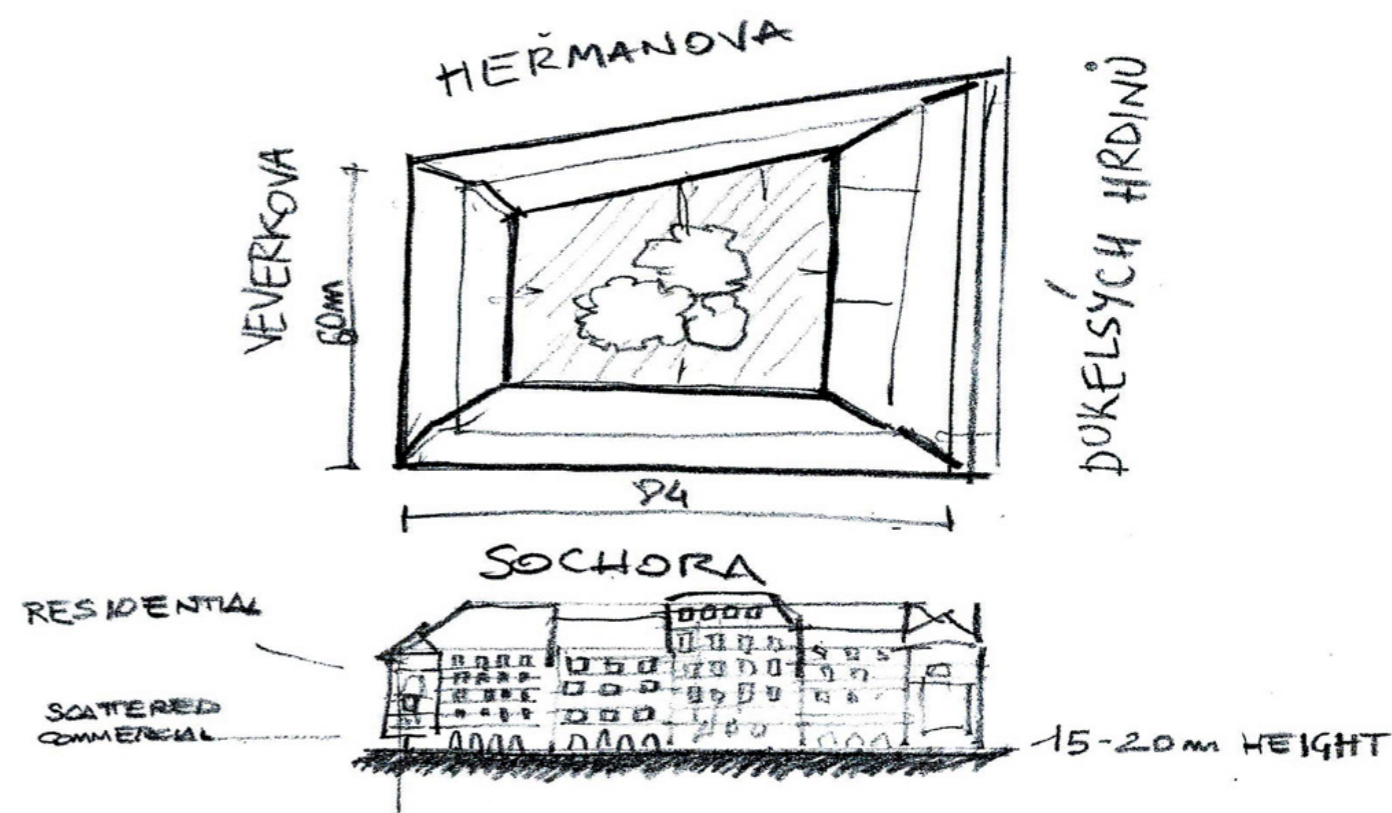 HEŘMANOVA
VEVERKOVA
60m
DUKELSÝCH HRDINŮ
94
SOCHORA
RESIDENTIAL
SCATTERED
COMMERCIAL
15-20m HEIGHT